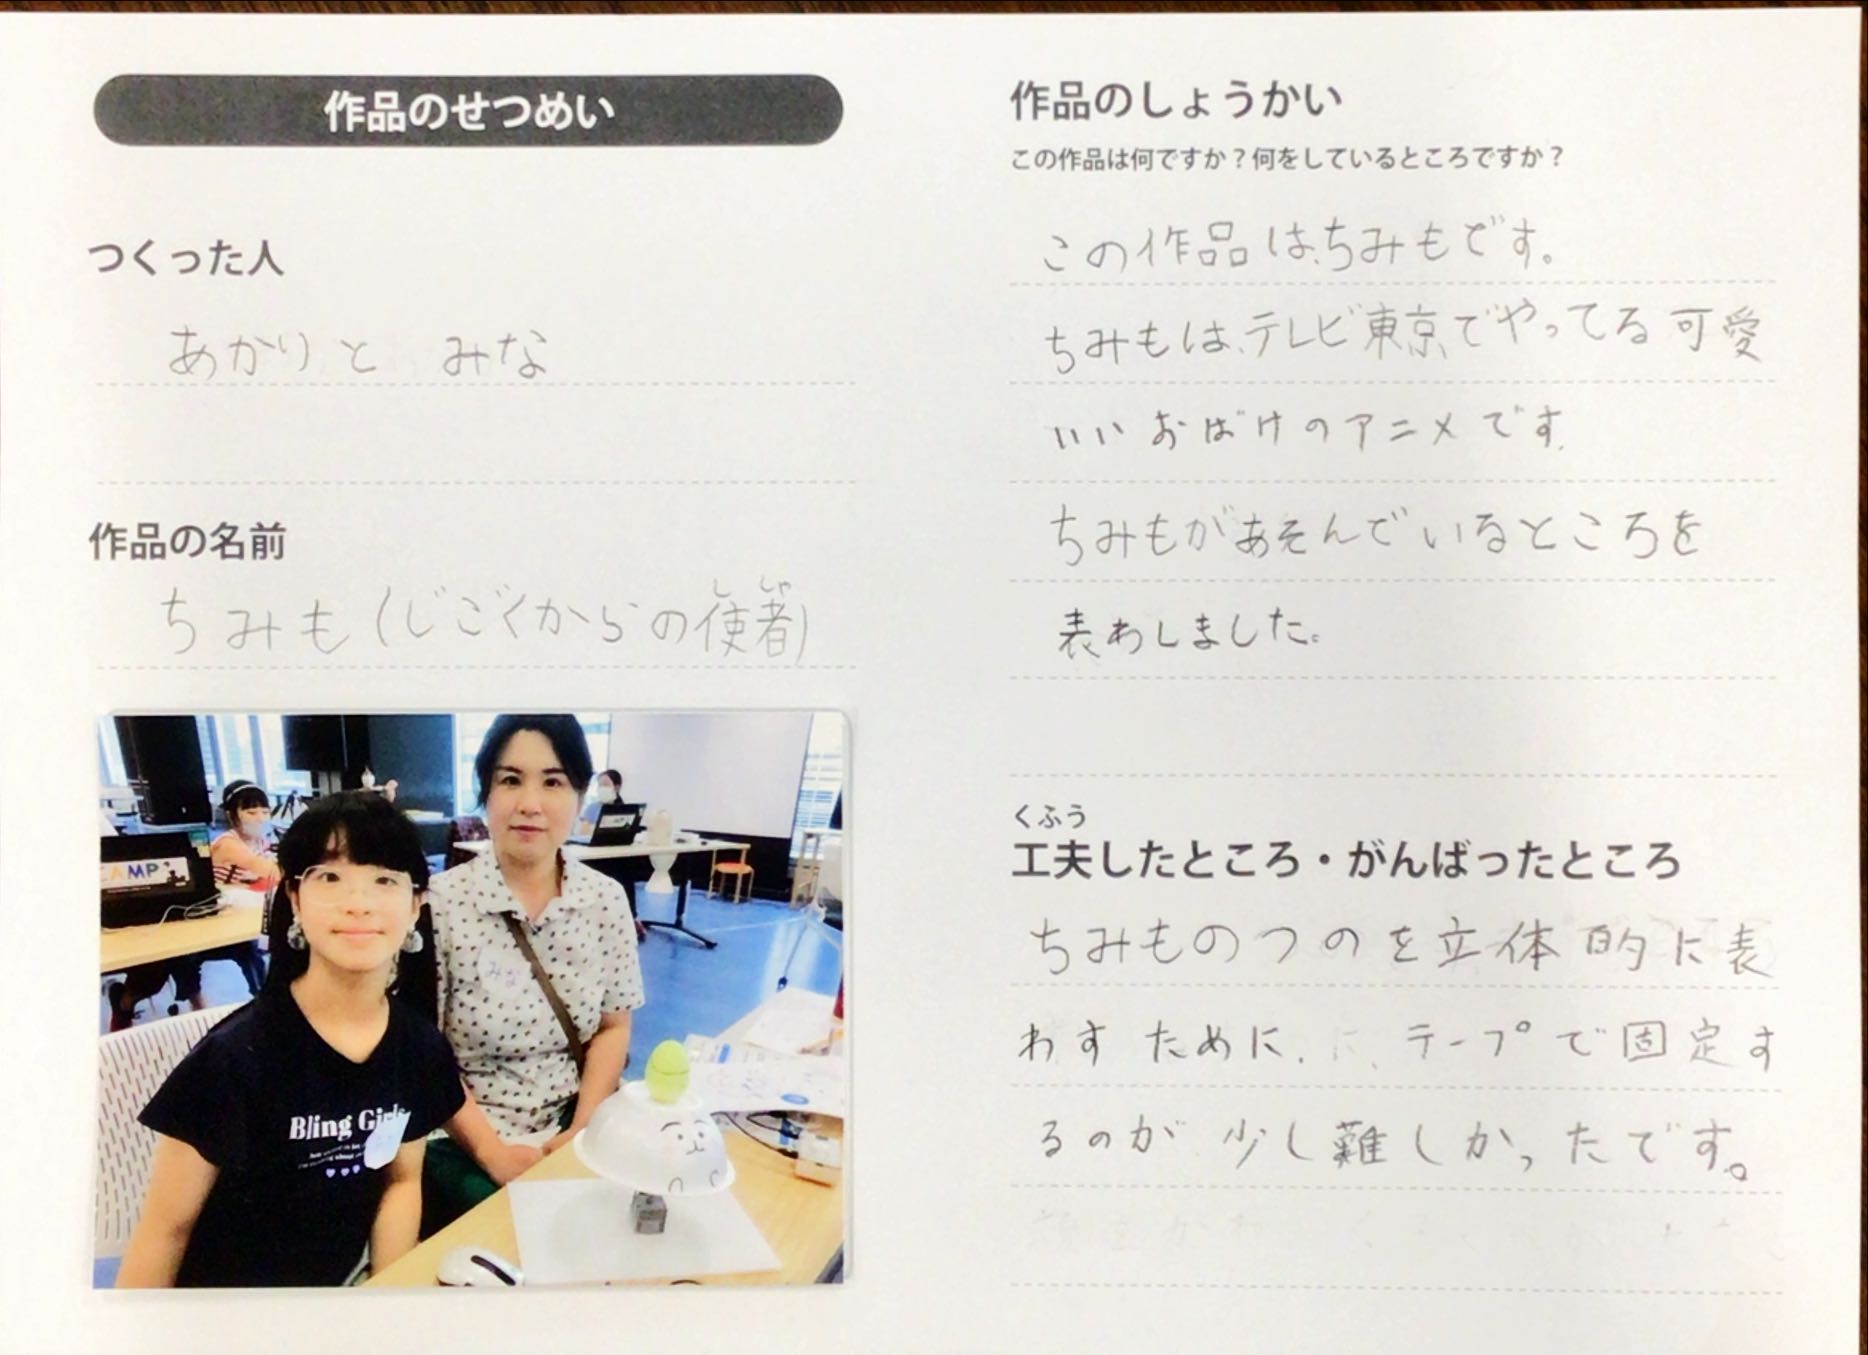 作品のせつめい
つくった人
あかりと みな
作品の名前
ちみも(じごくからの使者)
ししゃ
みな
Bling Girls
CAMP
作品のしょうかい
この作品は何ですか?何をしているところですか?
この作品は、ちみもです。
ちみもは、テレビ東京でやってる可愛
いいおばけのアニメです。
ちみもがあそんでいるところを
表わしました。
くふう
工夫したところ・がんばったところ
ちみものつのを立体的に表
わすために、テープで固定す
るのが少し難しかったです。